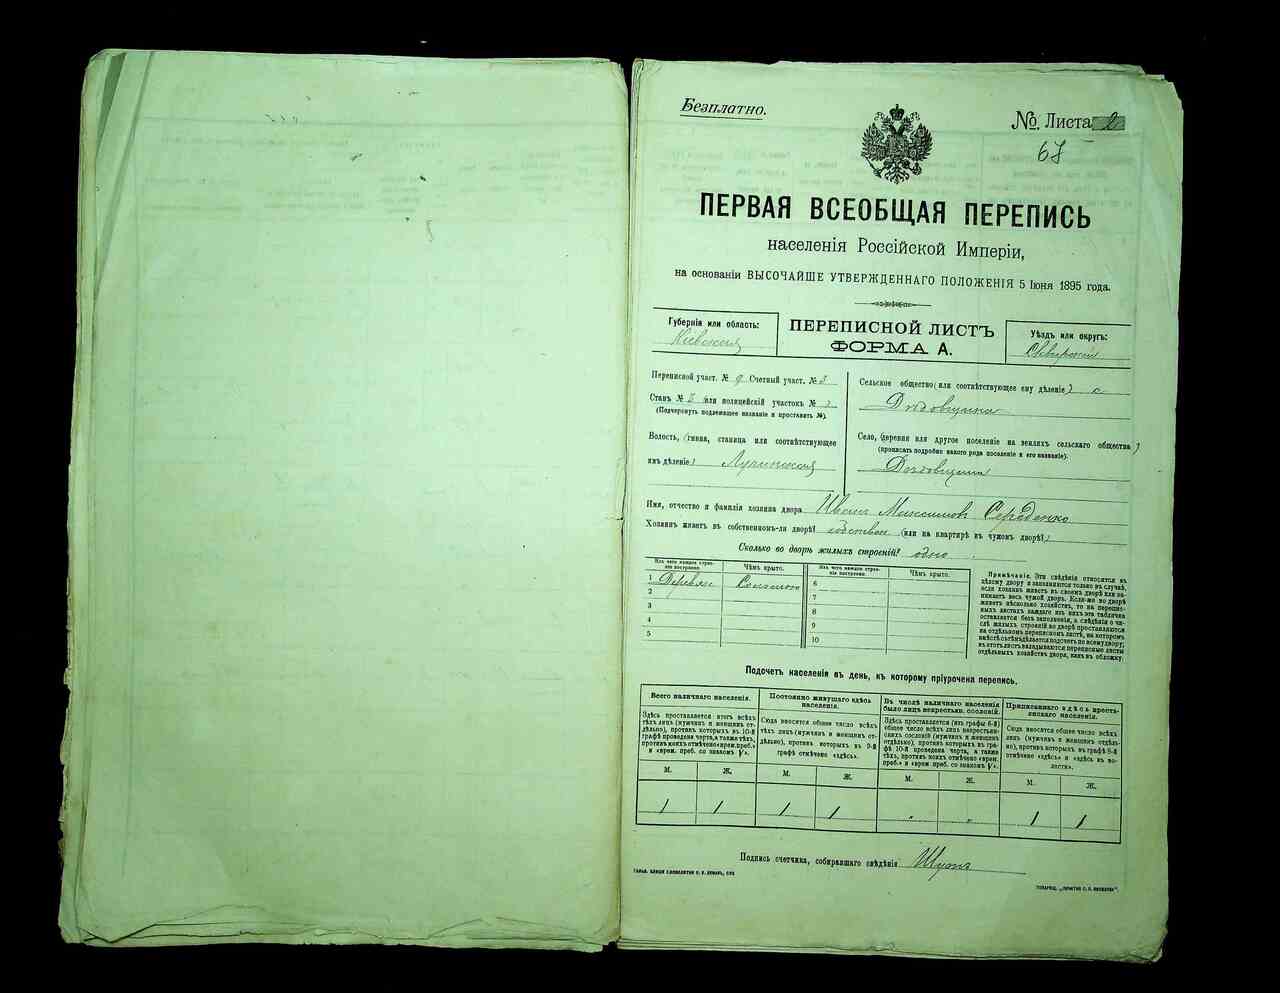 Безплатно.
№ Листа 2
67
ПЕРВАЯ ВСЕОБЩАЯ ПЕРЕПИСЬ
населенія Россійской Имперіи,
на основаніи ВЫСОЧАЙШЕ УТВЕРЖДЕННАГО ПОЛОЖЕНІЯ 5 Іюня 1895 года.
Губернія или область:
Кіевская
ПЕРЕПИСНОЙ ЛИСТЪ
ФОРМА А.
Уѣздъ или округъ:
Сквирскій
Переписной участ. № 9 Счетный участ. №
Станъ № или полицейскій участокъ №
(Подчеркнуть подлежащее названіе и проставить №).
Волость, (гмина, станица или соотвѣтствующее
имъ дѣленіе)
Сельское общество (или соотвѣтствующее ему дѣленіе) с
Село, (деревня или другое поселеніе на земляхъ сельскаго общества)
(прописать подробно какого рода поселеніе и его названіе).
Имя, отчество и фамилія хозяина двора Иванъ Максимовъ Середенко
Хозяинъ живетъ въ собственномъ-ли дворѣ? собствен (или на квартирѣ въ чужомъ дворѣ?)
Сколько во дворѣ жилыхъ строеній? одно
Изъ чего каждое строеніе построено. Чѣмъ крыто. Изъ чего каждое строеніе построено. Чѣмъ крыто.
1 Деревян Соломою 6
2 7
3 8
4 9
5 10
Примѣчаніе. Эти свѣдѣнія относятся къ
цѣлому двору и заполняются только въ случаѣ,
если хозяинъ живетъ въ своемъ дворѣ или занимаетъ весь чужой дворъ. Если-же во дворѣ
живетъ нѣсколько хозяйствъ, то на переписныхъ листахъ каждаго изъ нихъ эта табличка
оставляется безъ заполненія, а свѣдѣнія о числѣ жилыхъ строеній во дворѣ проставляются
на отдѣльномъ переписномъ листѣ, на которомъ
вмѣстѣ съ тѣмъ дѣлается подсчетъ по всему двору;
въ этотъ листъ вкладываются переписные листы
отдѣльныхъ хозяйствъ двора, какъ въ обложку.
Подсчетъ населенія въ день, къ которому пріурочена перепись.
Всего наличнаго населенія.
Здѣсь проставляется итогъ всѣхъ
тѣхъ лицъ (мужчинъ и женщинъ отдѣльно), противъ которыхъ въ 10-й
графѣ проведена черта, а также тѣхъ,
противъ коихъ отмѣчено «врем. преб.»
и «врем. преб. со знакомъ V».
Постоянно живущаго здѣсь
населенія.
Сюда вносится общее число всѣхъ
тѣхъ лицъ (мужчинъ и женщинъ отдѣльно), противъ которыхъ въ 9-й
графѣ отмѣчено «здѣсь».
Въ числѣ наличнаго населенія
было лицъ некрестьян. сословій.
Здѣсь проставляется (изъ графы 6-й)
общее число всѣхъ лицъ некрестьянскихъ сословій (мужчинъ и женщинъ
отдѣльно), противъ которыхъ въ графѣ 10-й проведена черта, а также
тѣхъ, противъ коихъ отмѣчено «врем.
преб.» и «врем. преб. со знакомъ V».
Приписаннаго здѣсь крестьянскаго населенія.
Сюда вносится общее число всѣхъ
лицъ (мужчинъ и женщинъ отдѣльно), противъ которыхъ въ графѣ 8-й
отмѣчено «здѣсь» и «здѣсь въ волости».
М. Ж. М. Ж. М. Ж. М. Ж.
1 1 1 1 „ „ 1 1
Подпись счетчика, собиравшаго свѣдѣнія